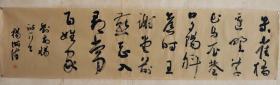 朱雀橋
邊野草
花烏衣巷
口夕陽斜
舊時王
謝堂前
燕飛入
尋常
百姓家
劉禹錫
詩
楊